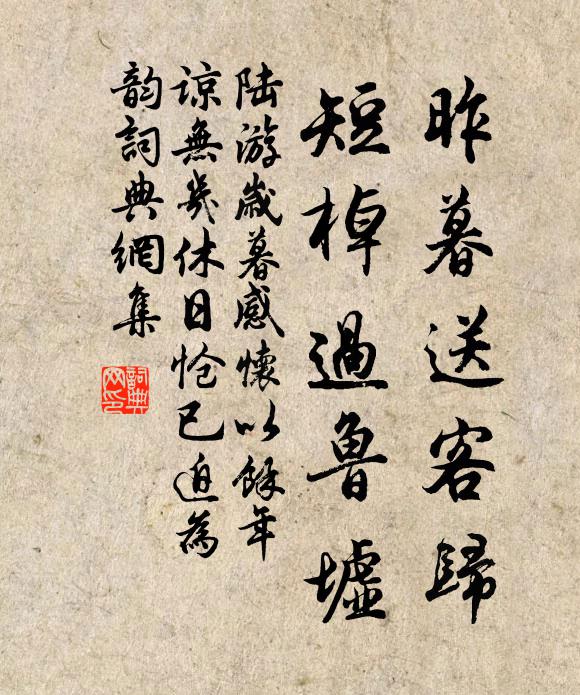 昨暮送客歸
短棹過魯墟
陸游歲暮感懷以餘年
諒無幾休日愴已迫為
韵詞典網集
詞典網印